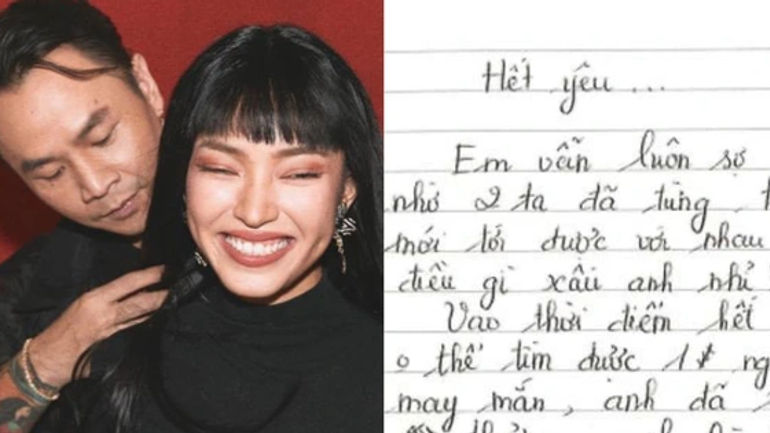 Hết yêu ...
Em vẫn luôn sợ
nhỏ 2 ta đã từng t
mới tới được với nhau
điều gì xấu anh nhỉ
Vào thời điểm hết
o thể tìm được 1 ng
may mắn, anh đã